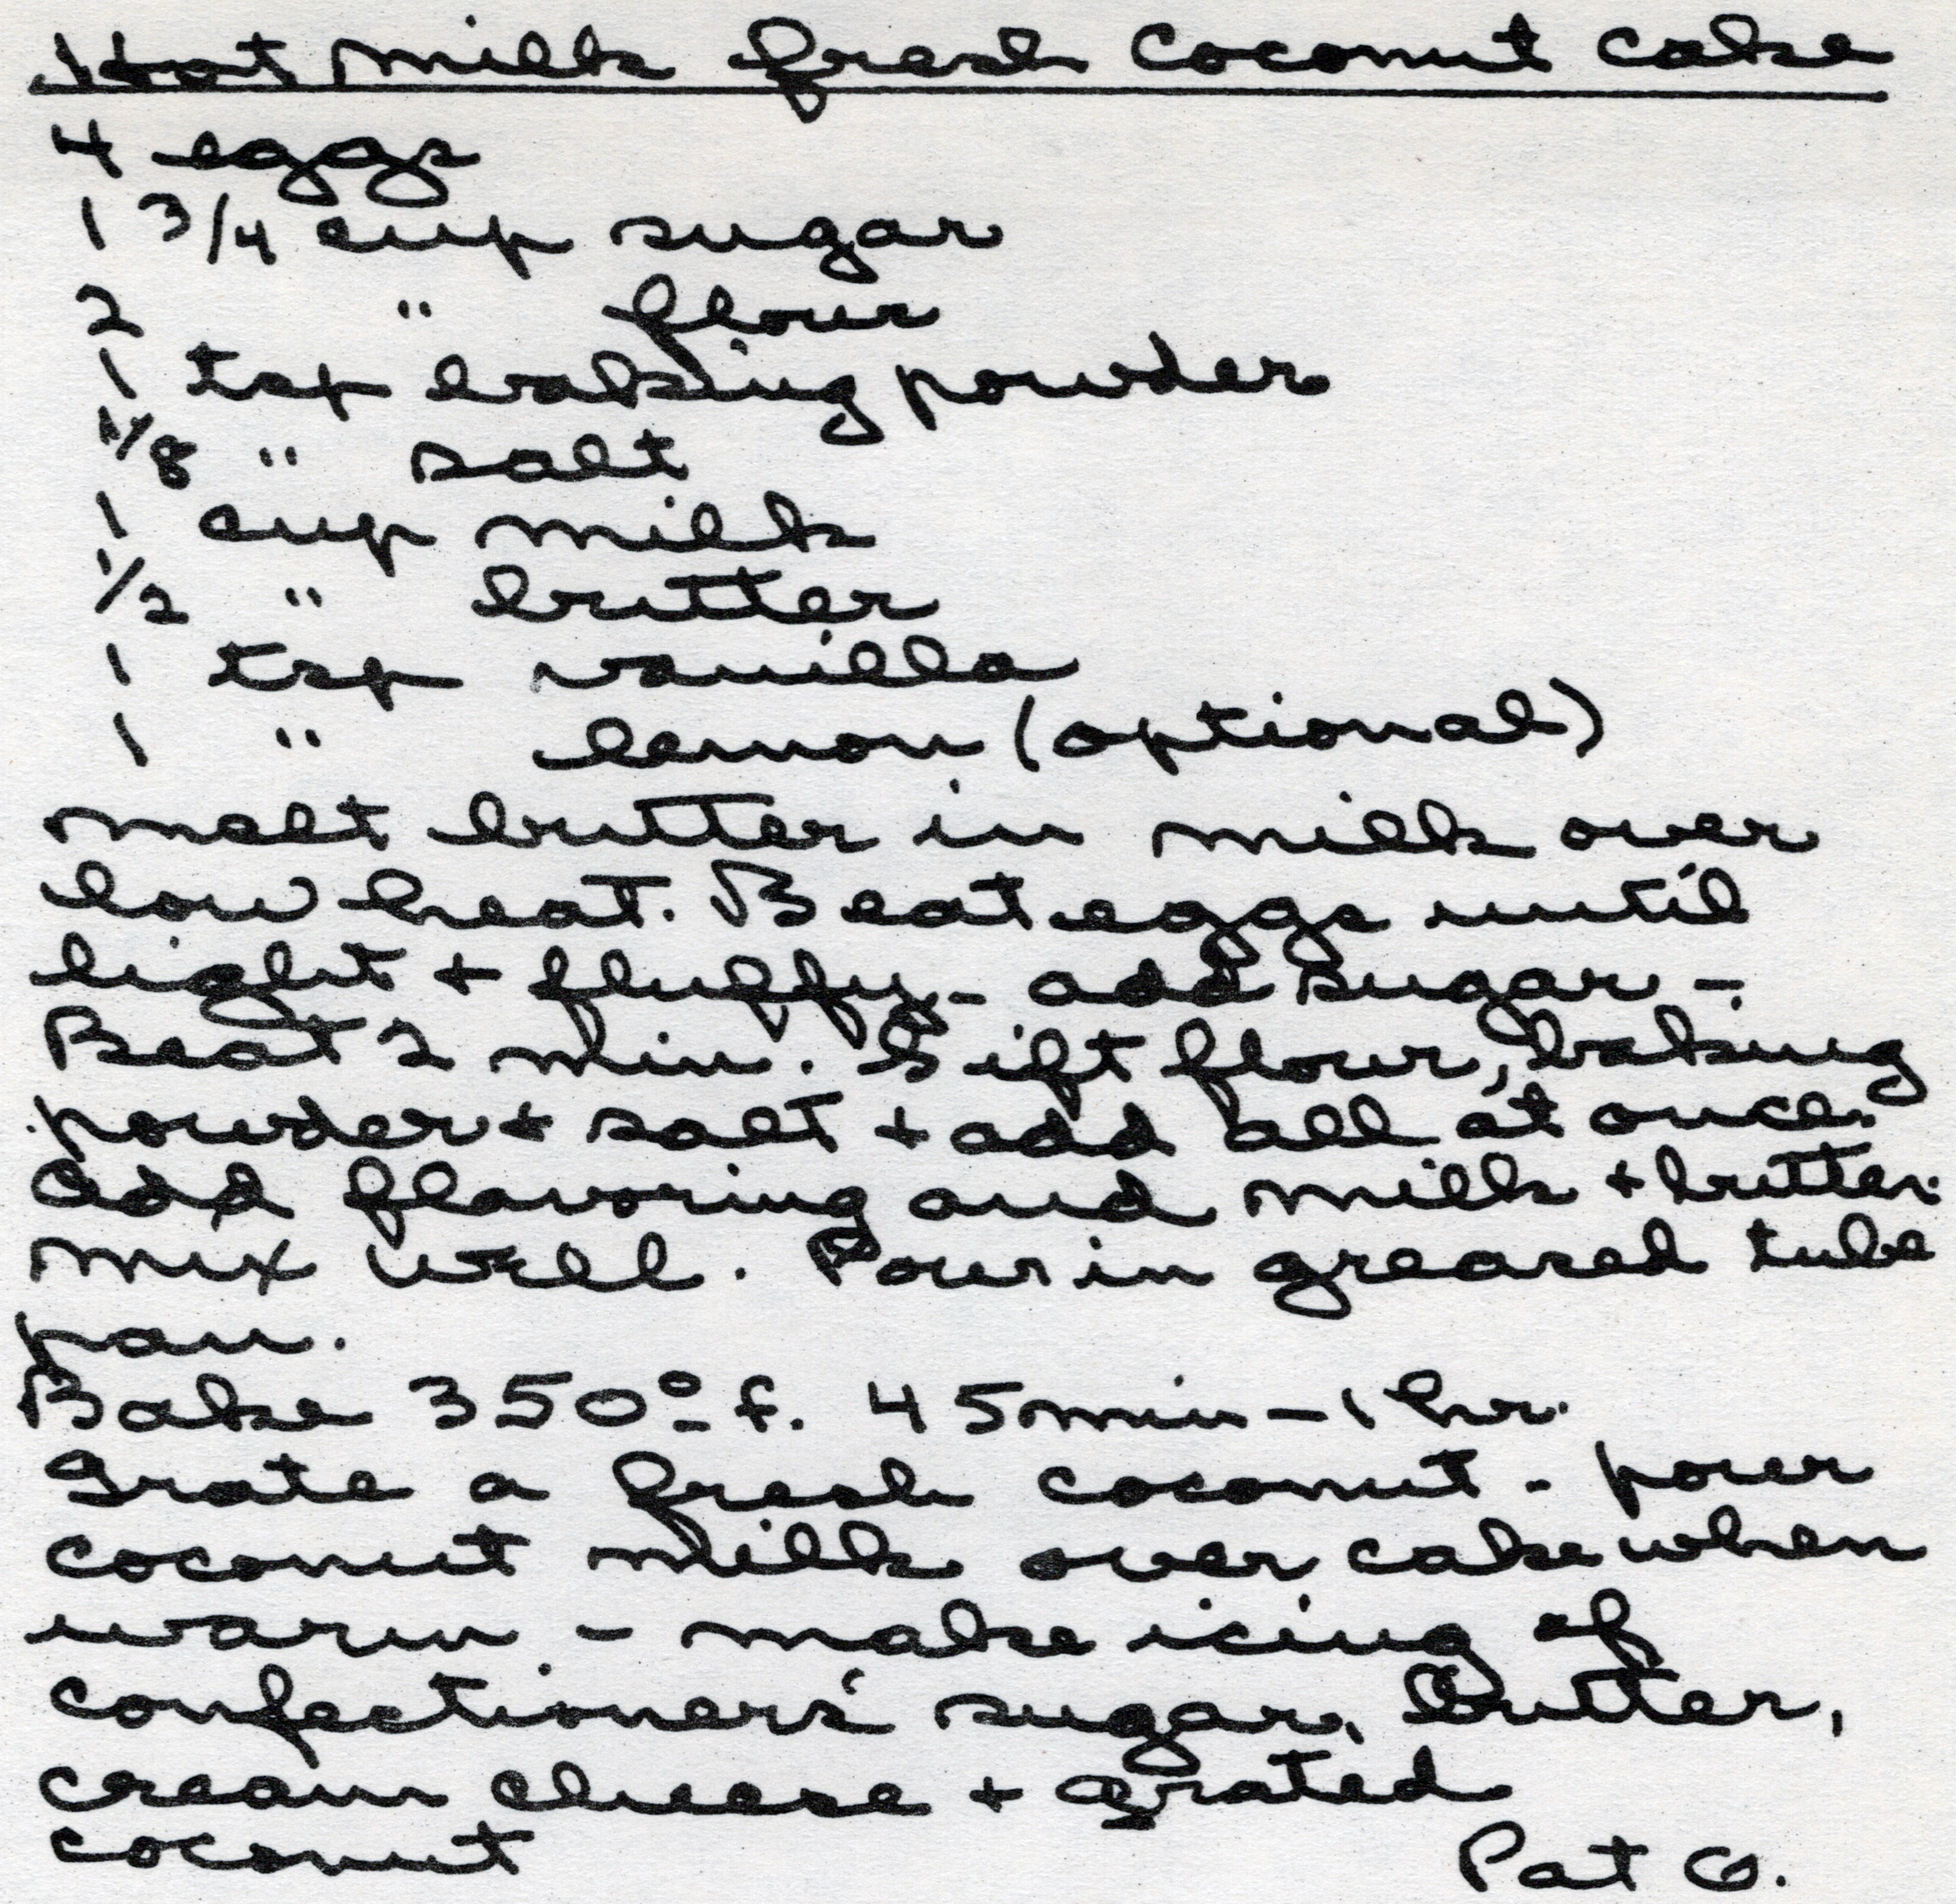 Hot Milk fresh Coconut Cake
4 eggs
1 3/4 cup sugar
2 " flour
1 tsp baking powder
1/8 " salt
1 cup milk
1/2 " butter
1 tsp vanilla
1 " lemon (optional)
melt butter in milk over
low heat. Beat eggs until
light + fluffy - add sugar -
Beat 2 min. Sift flour, baking
powder + salt + add all at once.
Add flavoring and milk + butter.
mix well. Pour in greased tube
pan.
Bake 350° f. 45 min - 1 hr.
Grate a fresh coconut - pour
coconut milk over cake when
warm - make icing of
confectioners' sugar, butter,
cream cheese + grated
coconut
Pat G.